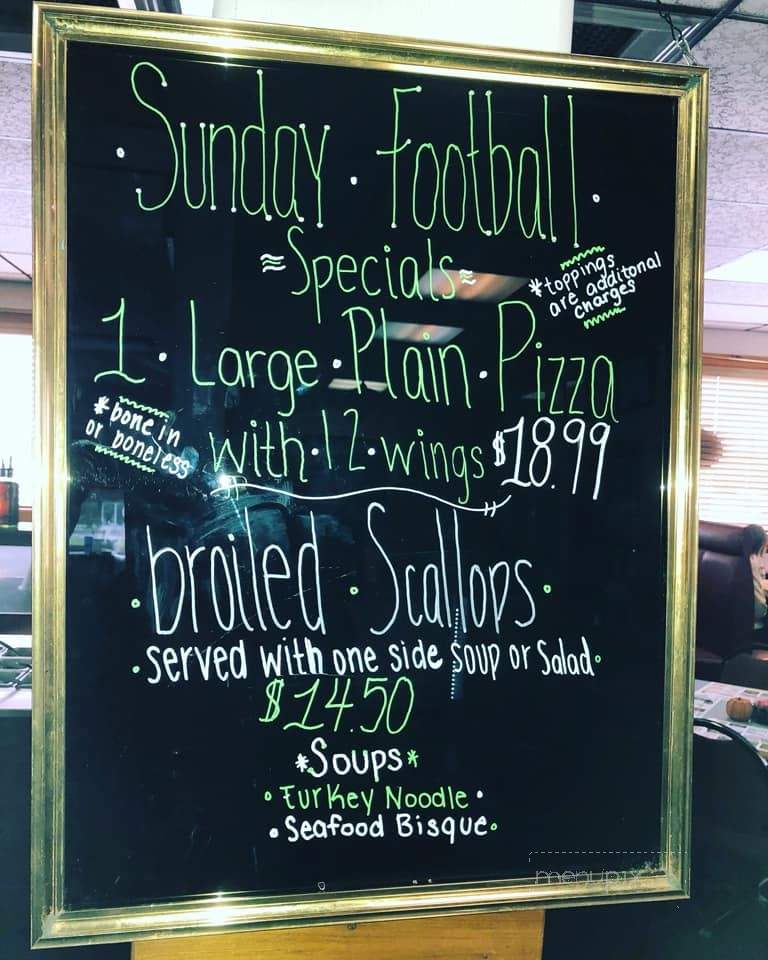 Sunday · Football
Specials
*toppings
are additonal
charges
1 · Large · Plain · Pizza
*bone in
or boneless
with · 12 · wings $18.99
· broiled · Scallops ·
· served with one side soup or Salad ·
$14.50
*Soups*
· Turkey Noodle ·
· Seafood Bisque ·
menupix